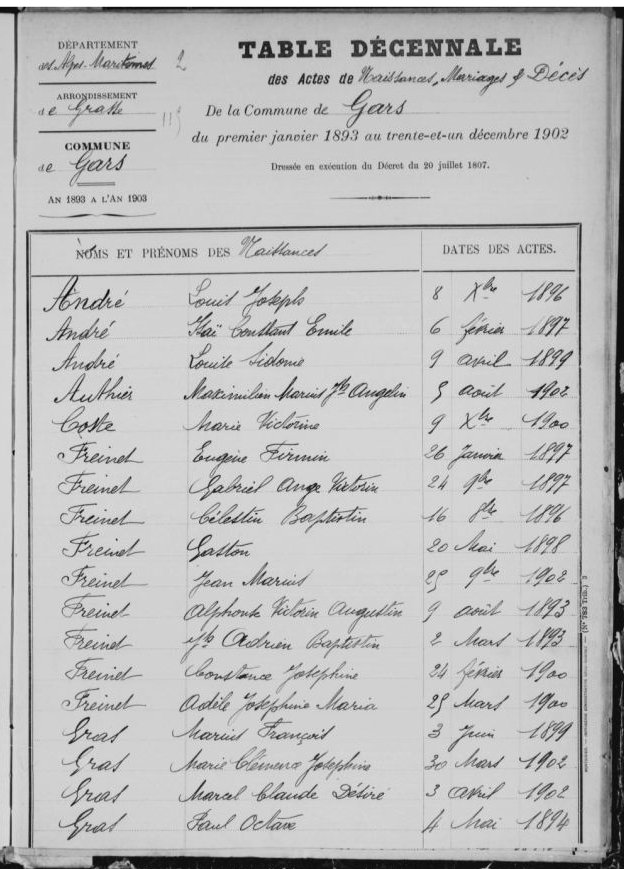 DÉPARTEMENT
des Alpes-Maritimes
2
ARRONDISSEMENT
de Grasse
COMMUNE
de Gars
AN 1893 A L'AN 1903
TABLE DÉCENNALE
des Actes de Naissances, Mariages & Décès
De la Commune de Gars
du premier janvier 1893 au trente-et-un décembre 1902
Dressée en exécution du Décret du 20 juillet 1807.
NOMS ET PRÉNOMS DES Naissances DATES DES ACTES.
André Louis Joseph 8 Xbre 1896
André Constant Emile 6 février 1897
André Louise Sidonie 9 avril 1899
Authier Maximilien Marius Jh Angelin 5 août 1902
Coste Marie Victorine 9 Xbre 1900
Freinet Eugène Firmin 26 Janvier 1897
Freinet Gabriel Ange Victorin 24 9bre 1897
Freinet Célestin Baptistin 16 8bre 1896
Freinet Gaston 20 Mai 1898
Freinet Jean Marius 25 9bre 1902
Freinet Alphonse Victorin Augustin 9 août 1893
Freinet Jh Adrien Baptistin 2 Mars 1893
Freinet Constance Joséphine 24 février 1900
Freinet Adèle Joséphine Maria 25 Mars 1900
Gras Marius François 3 Juin 1899
Gras Marie Clémence Joséphine 30 Mars 1902
Gras Marcel Claude Désiré 3 avril 1902
Gras Paul Octave 4 Mai 1894
(No 783 Trib.)